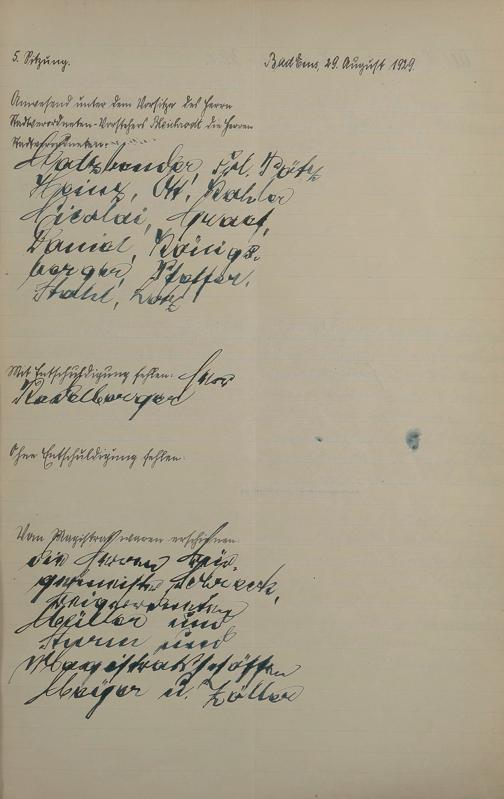 5. Sitzung.
Bad Ems, 29. August 1929.
Anwesend unter dem Vorsitze des Herrn
Stadtverordneten-Vorstehers die Herren
Stadtverordneten:
Malzbender, Frl. Röth
Heinz, Ott, Kohler
Nicolai, Graef,
Daniel, Königs-
berger, Pfeffer,
Stahl, Lotz
Mit Entschuldigung fehlen: Herr
Kadelberger
Ohne Entschuldigung fehlen:
Vom Magistrat waren erschienen:
die Herren Bür-
germeister Schreck,
Beigeordneten
Müller und
Sturm und
Magistratsschöffen
Meyer u. Zöller